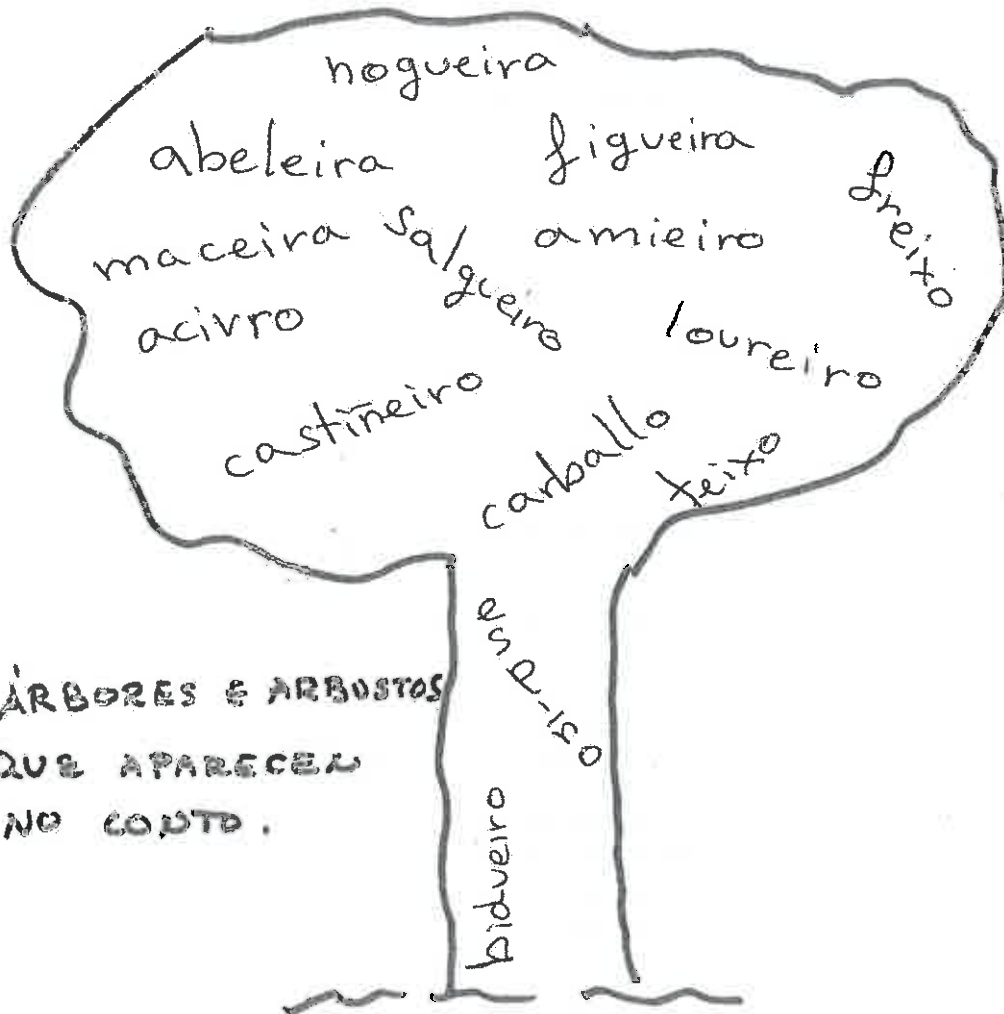 nogueira
abeleira
figueira
freixo
maceira
salgueiro
amieiro
acivro
loureiro
castiñeiro
carballo
teixo
espiño
bidueiro
ÁRBORES E ARBUSTOS
QUE APARECEN
NO CONTO.